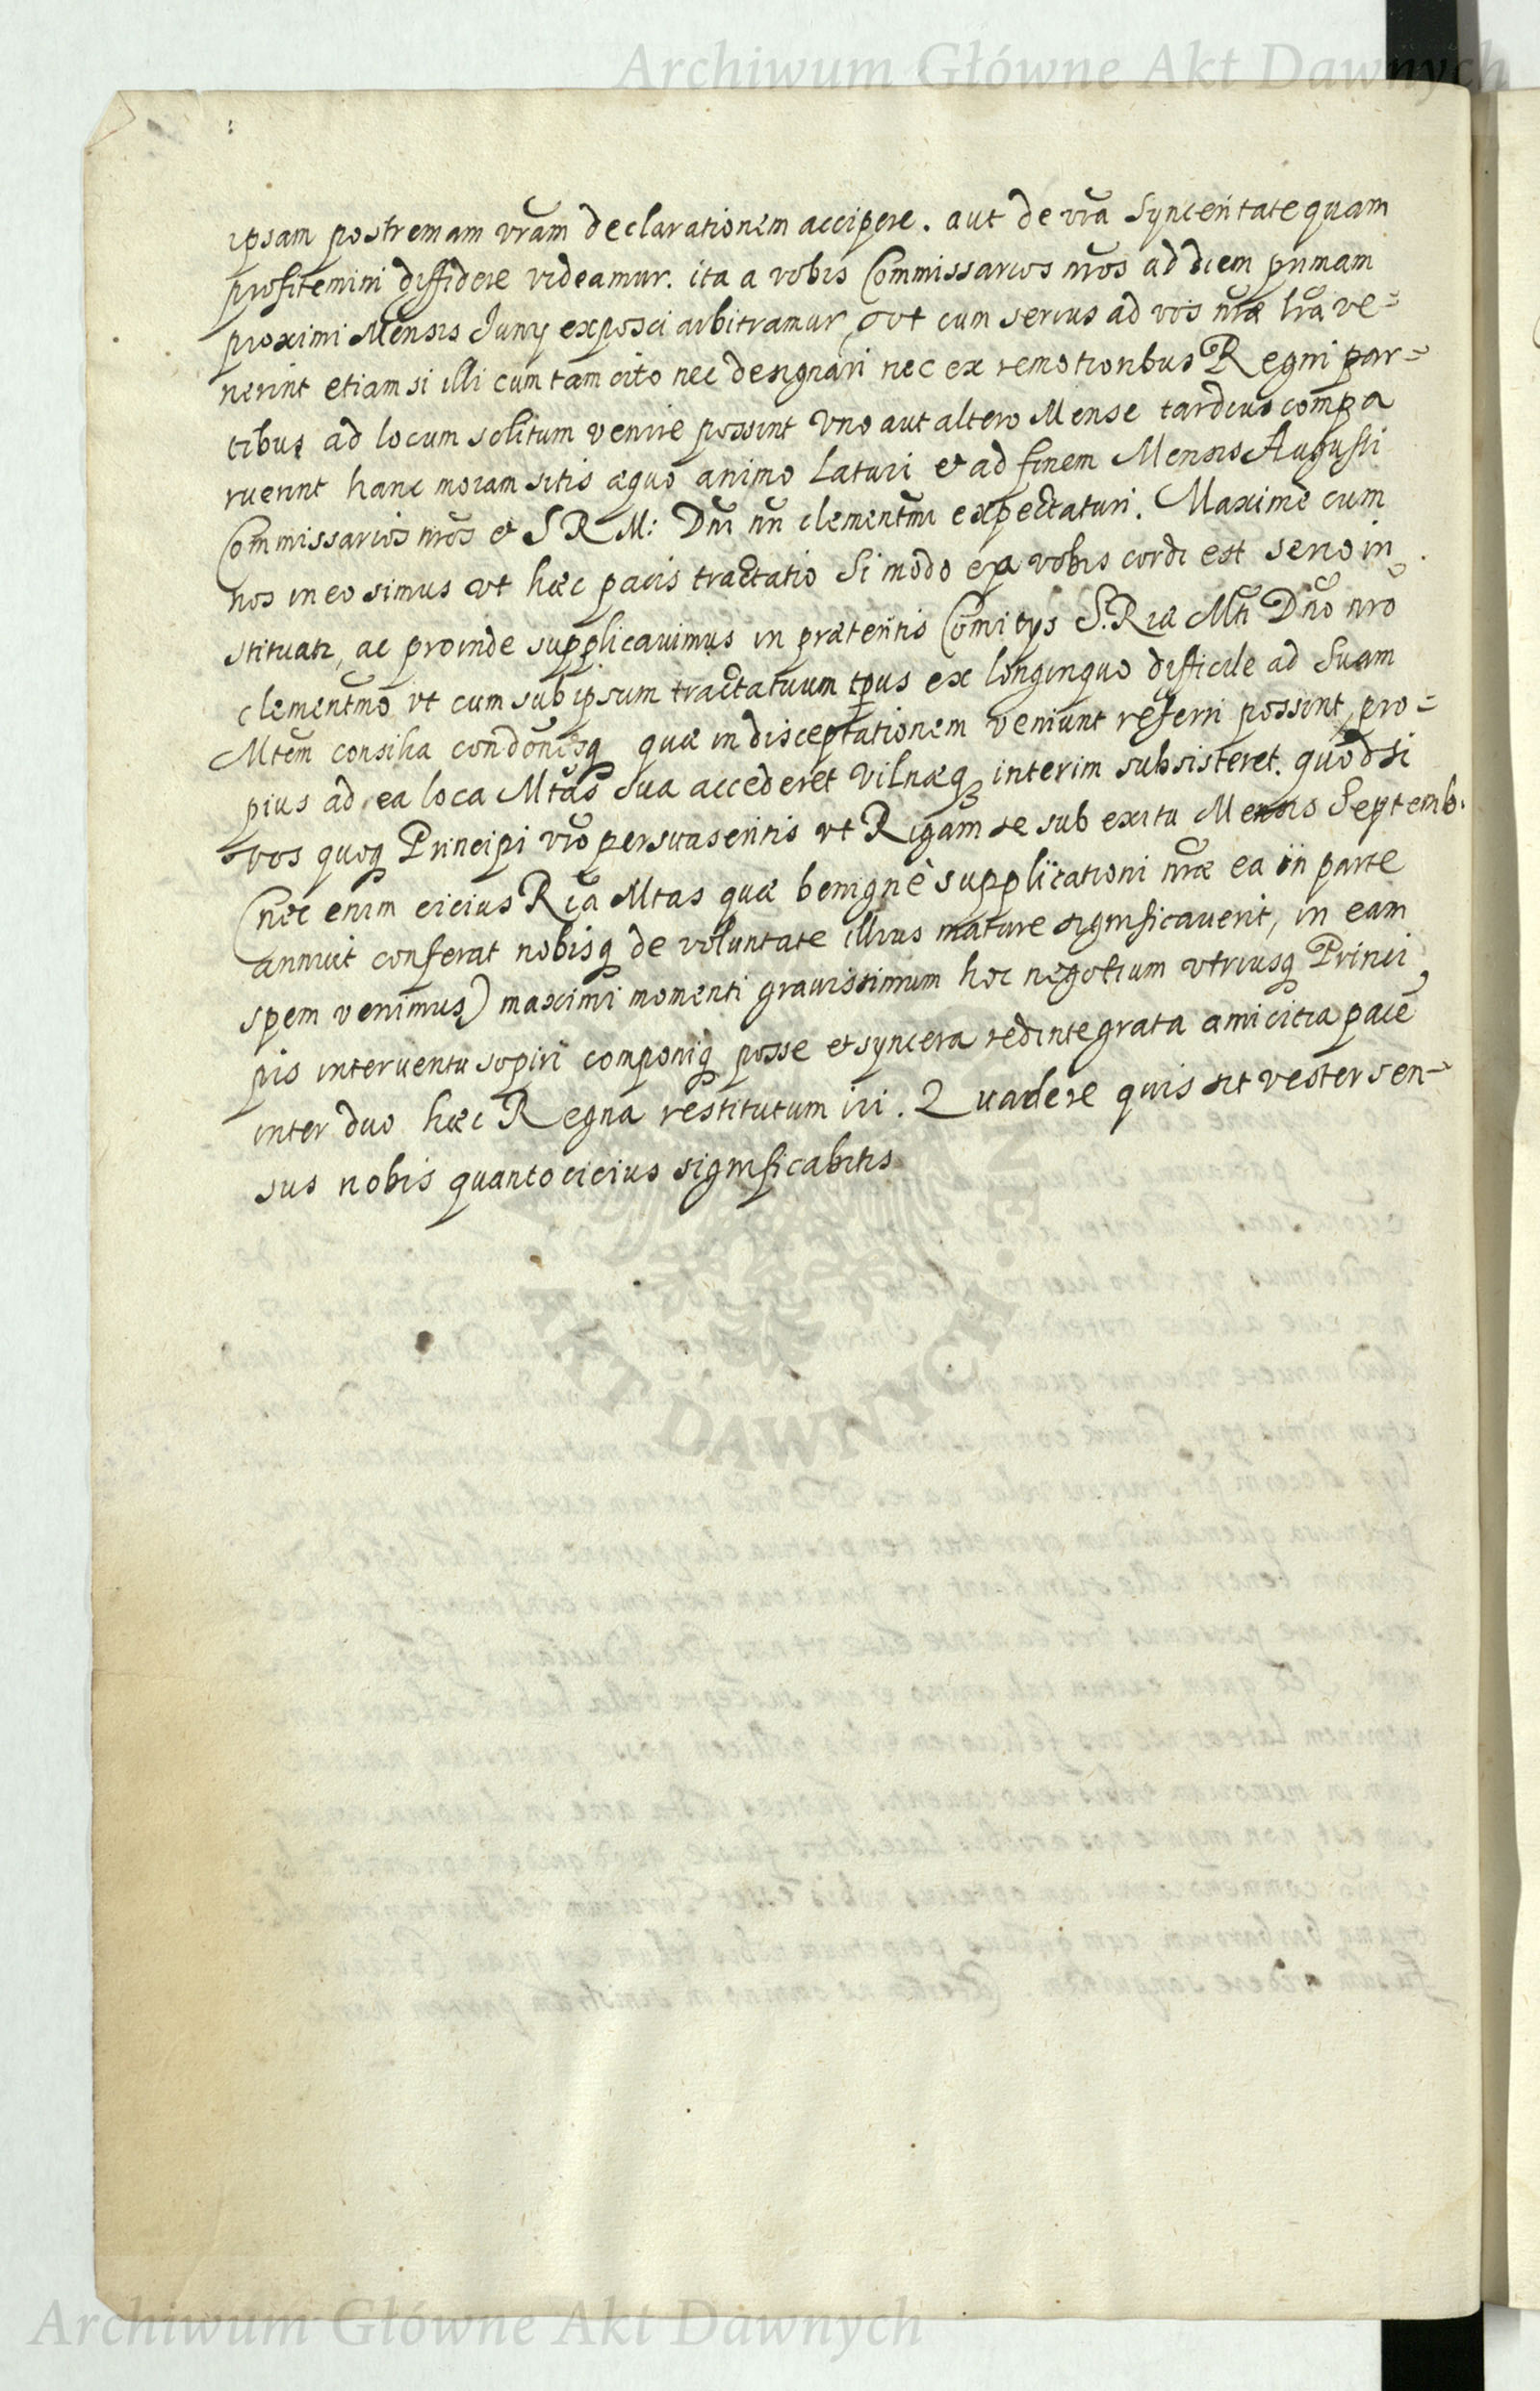 Archiwum Główne Akt Dawnych
ipsam postremam vr̃am declarationem accipere. aut de vr̃a Synceritate quam
profitemini diffidere videamur. ita a vobis Commissarios nr̃os ad diem primam
proximi Mensis Junij exposci arbitramur, vt cum serius ad vos nr̃æ lr̃æ ve=
nerint etiam si illi cum tam cito nec designari nec ex remotioribus Regni par=
tibus ad locum solitum venire possint Vno aut altero Mense tardius compa
ruerint hanc moram sitis æquo animo laturi et ad finem Mensis Augusti
Commissarios nr̃os et S R M: Dn̄i nr̃i clementm̃i expectaturi. Maximè cum
nos in eo simus vt hæc pacis tractatio Si modo ea vobis cordi est serio in
stituatr, ac proinde supplicauimus in præteritis Comitijs S. R iæ Mt̃i Dn̄o nr̃o
clementm̃o vt cum sub ipsum tractatuum tp̃us ex longinquo difficile ad Suam
Mtem̃ consilia condōnesq quæ in disceptationem veniunt referri possint, pro=
pius ad ea loca Mtãs Sua accederet Vilnæq interim subsisteret. quòd si
vos quoq Principi vr̃o persuaseritis vt Rigam se sub exitu Mensis Septemb.
(nec enim cicius R iã Mtas quæ benignè supplicationi nr̃æ ea in parte
annuit conferat nobisq de voluntate illius mature significauerit, in eam
spem venimus) maximi momenti grauissimum hoc negotium vtriusq Princi
pis interuentu sopiri componiq posse et syncera redintegrata amicitia pacē
inter duo hæc Regna restitutum iri. Quadere quis sit vester sen=
sus nobis quantocicius significabitis
AKT DAWNYCH
Archiwum Główne Akt Dawnych